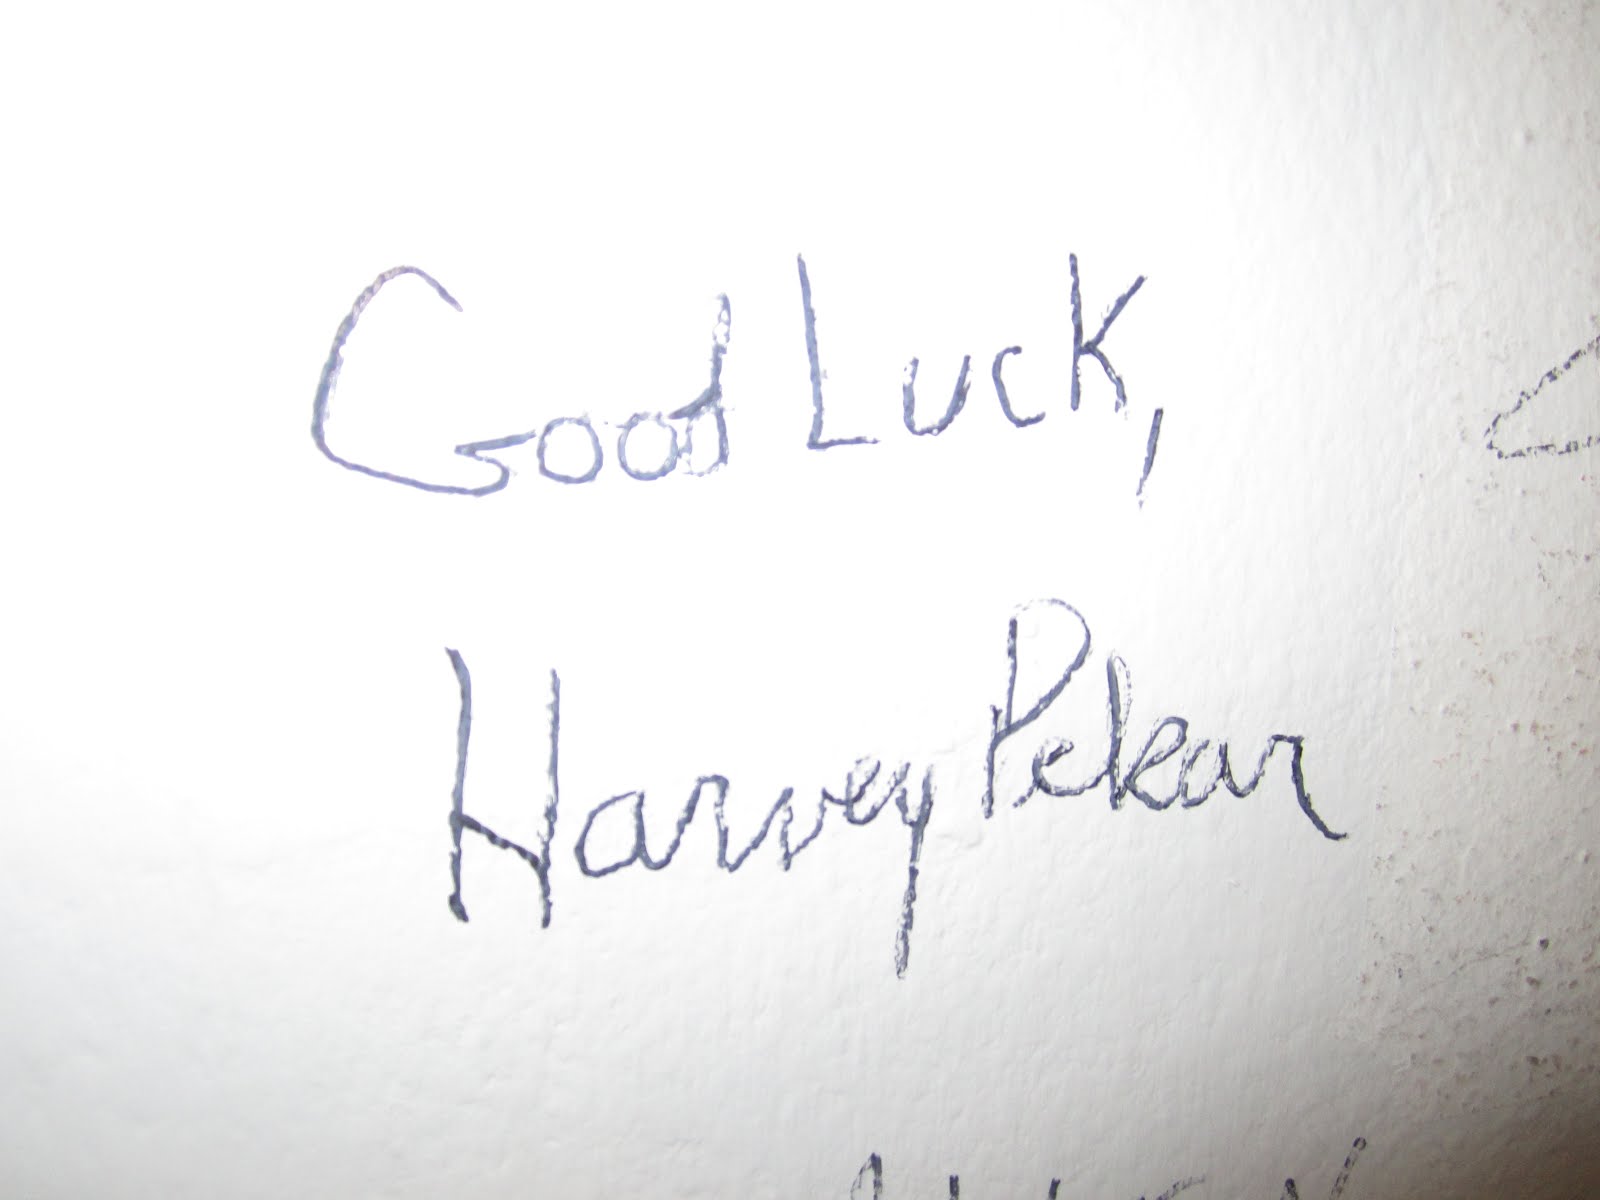 Good Luck,
Harvey Pekar